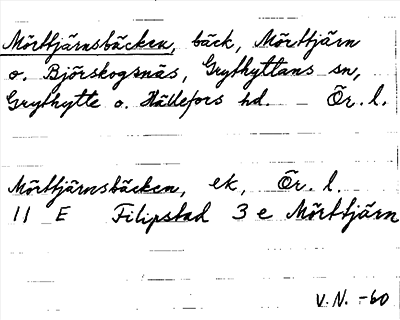 Mörttjärnsbäcken, bäck, Mörttjärn
o. Björskogsnäs, Grythyttans sn,
Grythytte o. Hällefors hd. – Ör. l.
Mörttjärnsbäcken, ek, Ör. l.
11 E Filipstad 3 e Mörttjärn
V. N. -60